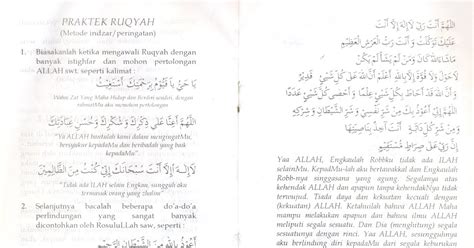 PRAKTEK RUQYAH
(Metode indzar/peringatan)
1. Biasakanlah ketika mengawali Ruqyah dengan
banyak istighfar dan mohon pertolongan
ALLAH swt. seperti kalimat :
يَا حَيُّ يَا قَيُّوْمُ بِرَحْمَتِكَ أَسْتَغِيْثُ
Wahai Zat Yang Maha Hidup dan Berdiri sendiri, dengan
rahmatMu aku memohon pertolongan
اَللّٰهُمَّ أَعِنَّا عَلَى ذِكْرِكَ وَشُكْرِكَ وَحُسْنِ عِبَادَتِكَ
"Ya ALLAH bantulah kami dalam mengingatMu,
bersyukur kepadaMu dan beribadah yang baik
kepadaMu"
لَا إِلٰهَ إِلَّا أَنْتَ سُبْحَانَكَ إِنِّي كُنْتُ مِنَ الظَّالِمِيْنَ
"Tidak ada ILAH selain Engkau, sungguh aku
termasuk orang yang zhalim"
2. Selanjutnya bacalah beberapa do'a-do'a
perlindungan yang sangat banyak
dicontohkan oleh RosuluLLah saw, seperti :
اَللّٰهُمَّ أَنْتَ رَبِّي لَا إِلٰهَ إِلَّا أَنْتَ
عَلَيْكَ تَوَكَّلْتُ وَأَنْتَ رَبُّ الْعَرْشِ الْعَظِيْمِ
مَا شَاءَ اللهُ كَانَ وَمَا لَمْ يَشَأْ لَمْ يَكُنْ
Yaa ALLAH, Engkaulah Robbku tidak ada ILAH
selainMu. KepadaMu-lah aku bertawakkal dan Engkaulah
Robb-nya singgasana yang agung. Apapun yang
kehendak ALLAH dan apapun tanpa kehendakNya tidak
terwujud. Tiada daya dan kekuatan kecuali dengan
(kekuatan) ALLAH. Ketahuilah bahwa ALLAH Maha
mampu melakukan apapun dan bahwa ilmuNya meliputi
segala sesuatu. Dan Dia (menghitung) segala
sesuatunya dengan rinci. Yaa ALLAH, sesungguhnya
aku berlindung diri kepadaMu dari kejahatan